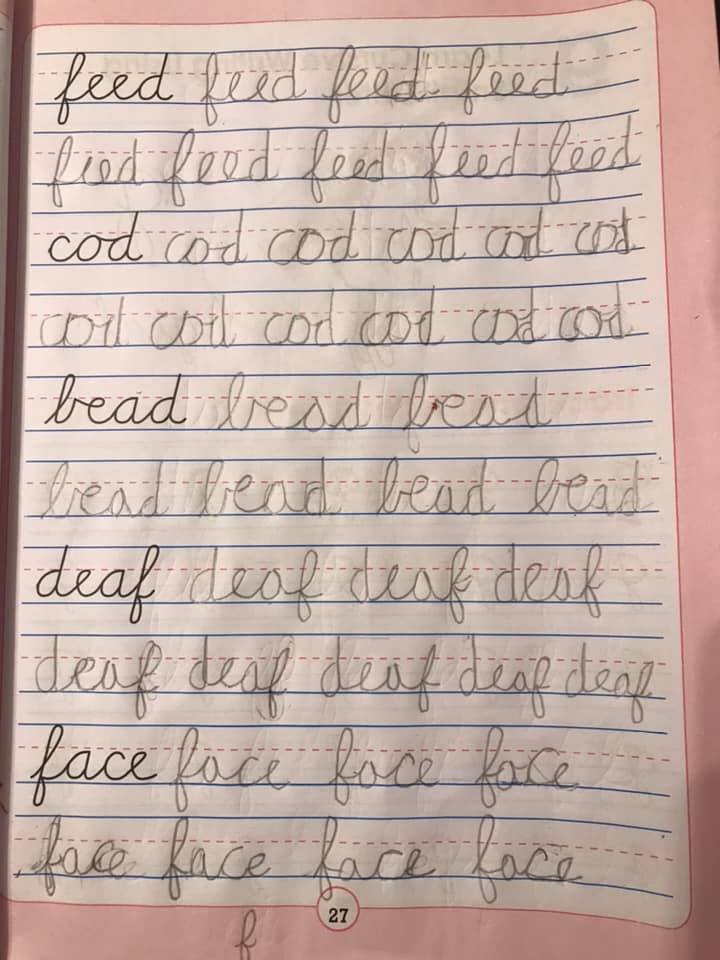 feed feed feed feed
feed feed feed feed feed
cod cod cod cod cod cod
cod cod cod cod cod cod
bead bead bead
bead bead bead bead
deaf deaf deaf deaf
deaf deaf deaf deaf deaf
face face face face
face face face face
27
f